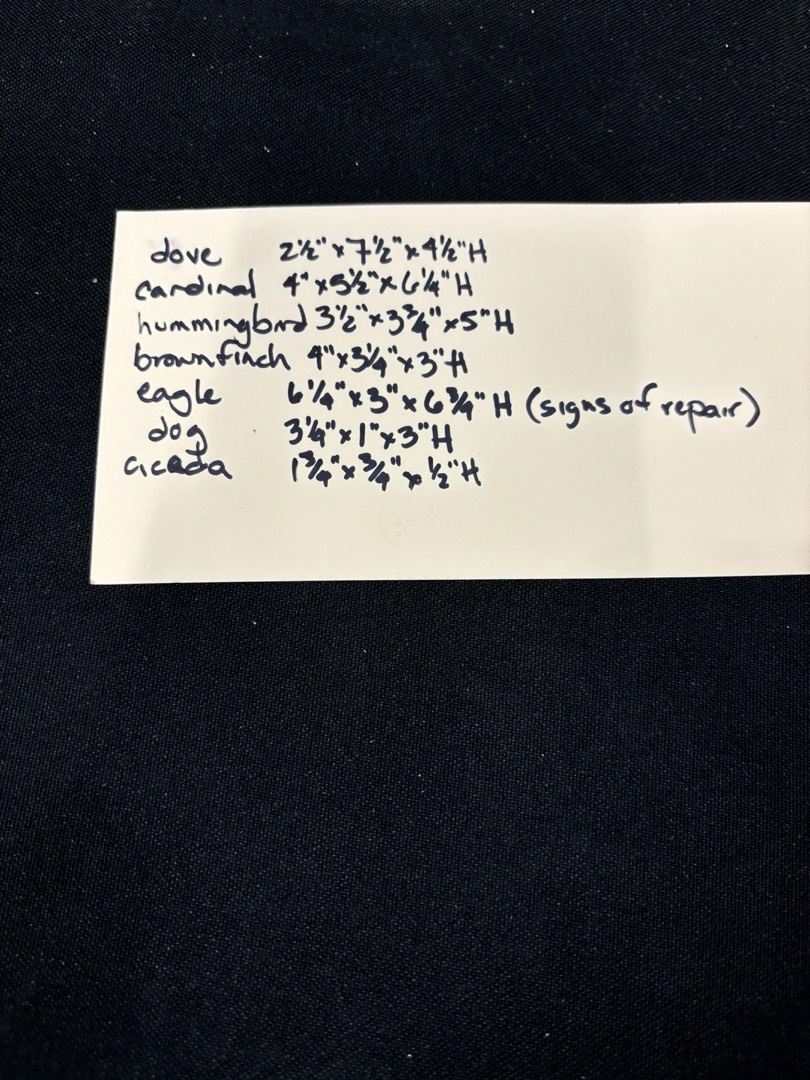 dove 2½" x 7½" x 4½" H
cardinal 4" x 5½" x 6¼" H
hummingbird 3½" x 3¾" x 5" H
brown finch 4" x 3¼" x 3" H
eagle 6¼" x 3" x 6¾" H (signs of repair)
dog 3¼" x 1" x 3" H
cicada 1¾" x ¾" x ½" H